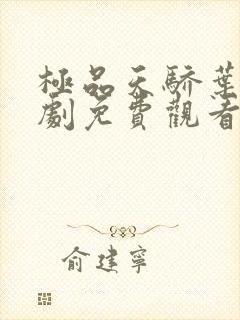 極品天驕葉
劇免費觀看
俞建寧